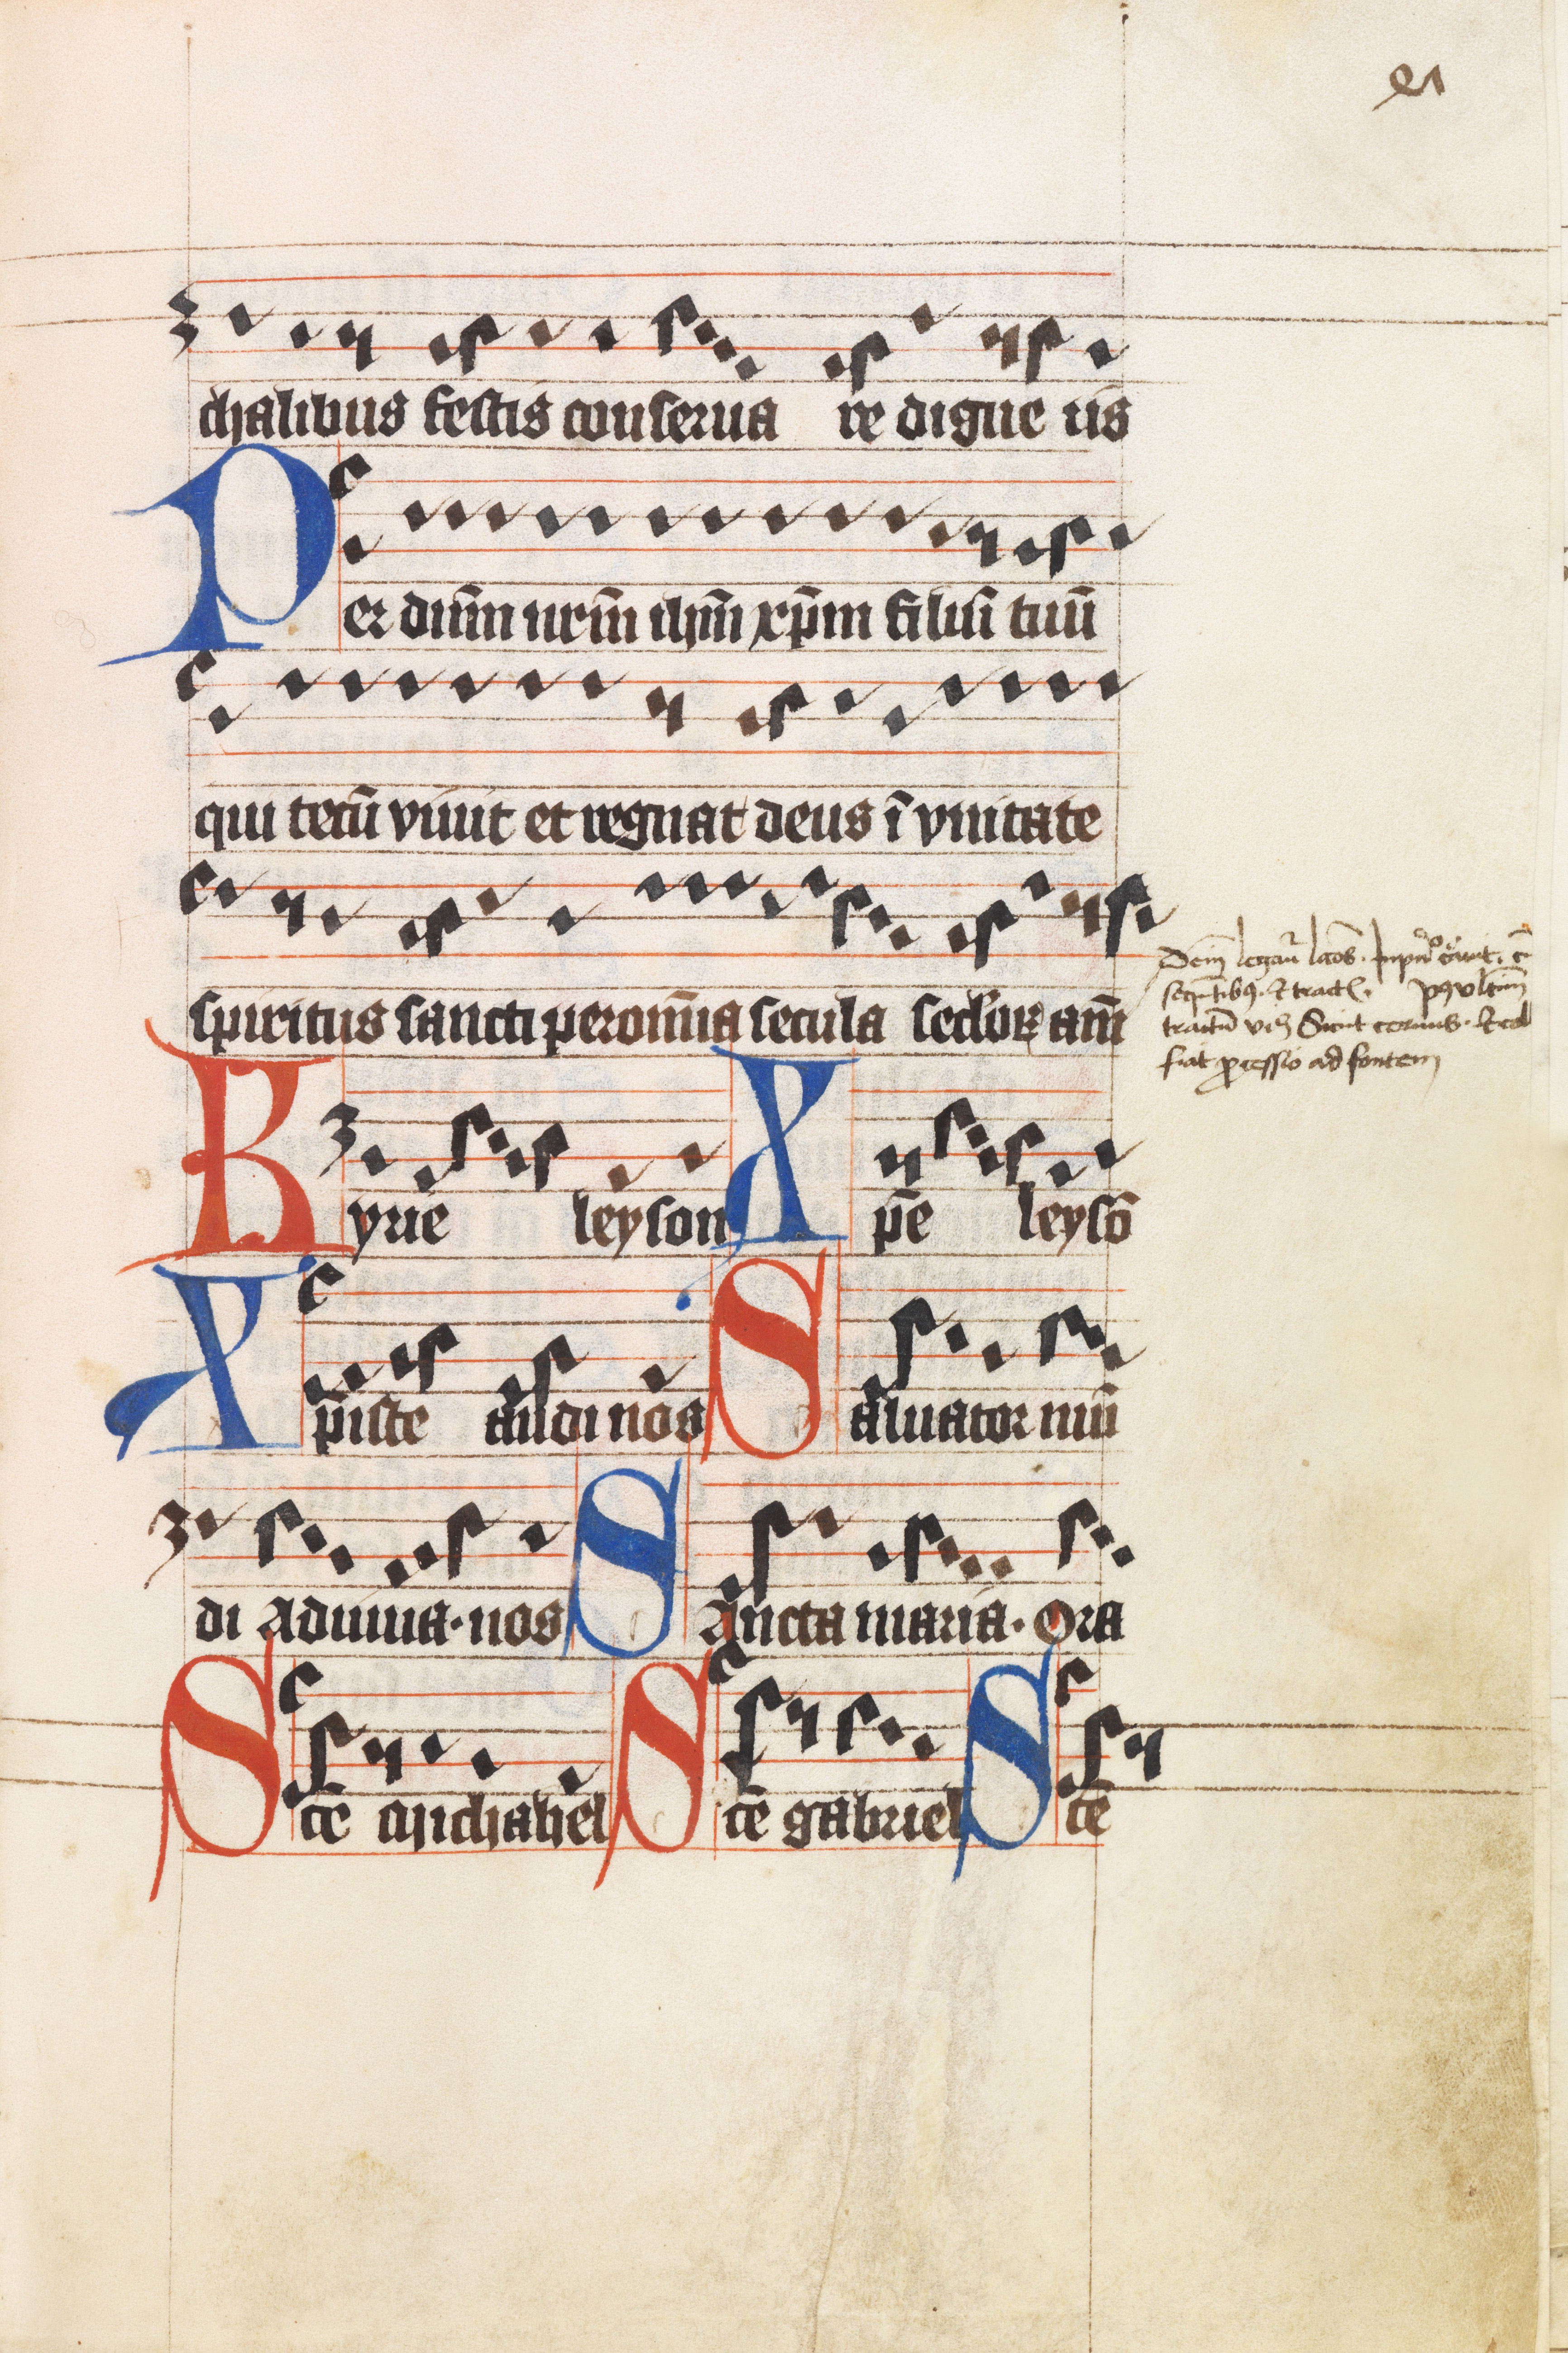 21
chalibus festis conserua re digne ris
Per dn̄m nrm̄ ihm̄ xp̄m filiū tuū
qui tecū viuit et regnat deus ī vnitate
spiritus sancti per om̄ia secula seclōꝝ am̄
Kyrie leyson Xp̄e leysō
Xp̄iste audi nos Saluator mū
di Adiuua · nos Sancta maria · Ora
Sc̄e michahel Sc̄e gabriel Sc̄e
Dein̄ legan̄t
seqn̄tibꝫ · et tract
tractū Sicut ceruus ·
fiat ꝓcessio ad fontem